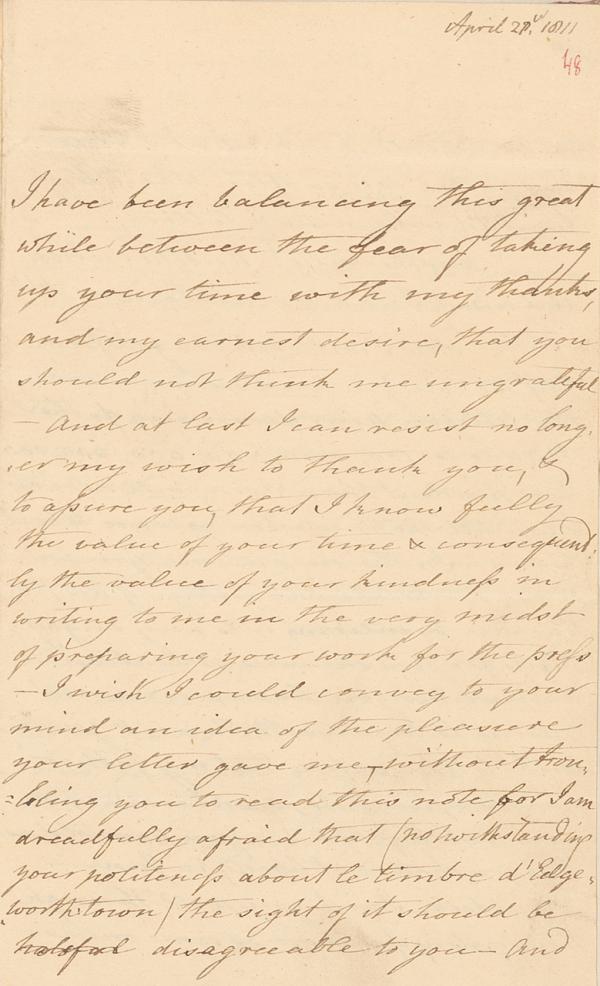 April 28.th 1811
48
I have been balancing this great
while between the fear of taking
up your time with my thanks,
and my earnest desire, that you
should not think me ungrateful
– And at last I can resist no long-
-er my wish to thank you, &
to assure you, that I know fully
the value of your time & consequent-
ly the value of your kindness in
writing to me in the very midst
of preparing your work for the press
– I wish I could convey to your
mind an idea of the pleasure
your letter gave me – without trou=
=bling you to read this note for I am
dreadfully afraid that (notwithstanding
your politeness about le timbre d'Edge-
-worthtown) the sight of it should be
disagreeable to you – And